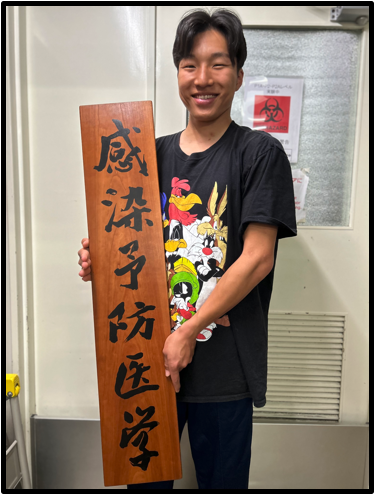 感染予防医学